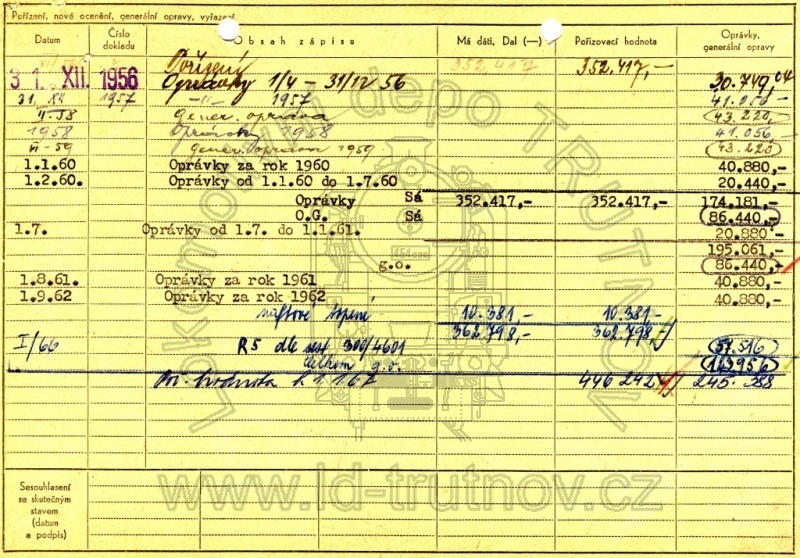 Pořízení, nové ocenění, generální opravy, vyřazení
Datum Číslo dokladu Obsah zápisu Má dáti, Dal (—) Pořizovací hodnota Oprávky, generální opravy
Pořízený 352417 352.417,-
31. XII. 1956 Oprávky 1/4 – 31/12 56 30.749,04
1957 -"- 1957 41.056,-
II-58 gener. oprava 43.220,-
1958 Oprávky 1958 41.056,-
VI-59 gener. oprava 1959 43.220
1.1.60 Oprávky za rok 1960 40.880,-
1.2.60. Oprávky od 1.1.60 do 1.7.60 20.440,-
Oprávky Sá 352.417,- 352.417,- 174.181,-
O.G. Sá 86.440,-
1.7. Oprávky od 1.7. do 1.1.61. 20.880,-
195.061,-
g.o. 86.440,-
1.8.61. Oprávky za rok 1961 40.880,-
1.9.62 Oprávky za rok 1962 40.880,-
naftové topení 10.381,- 10.381,-
362.798,- 362.798,-
I/66 R5 dle sest. 300/4601 57.516
Celkem g.o. 143956
Poř. hodnota k 1.1.67 446242 245.388
Sesouhlasení se skutečným stavem (datum a podpis)
Lokomotivní depo TRUTNOV
www.ld-trutnov.cz